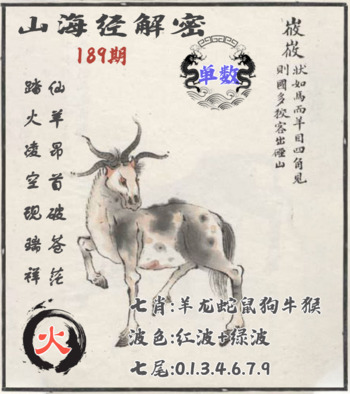 山海经解密
189期
单数
峳峳
狀如馬而羊目四角見
則國多狡客出山
仙羊昂首破苍茫
踏火凌空现瑞祥
火
七肖:羊龙蛇鼠狗牛猴
波色:红波+绿波
七尾:0.1.3.4.6.7.9